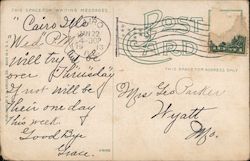 THIS SPACE FOR WRITING MESSAGES
POST
CARD
"Cairo Ills
JAN 22
"Wed" P.M.
Will try to be
over Thursday
if not will be
their one day
this week.
Good Bye
Grace.
THIS SPACE FOR ADDRESS ONLY
Mrs Geo Parker
Wyatt
Mo.